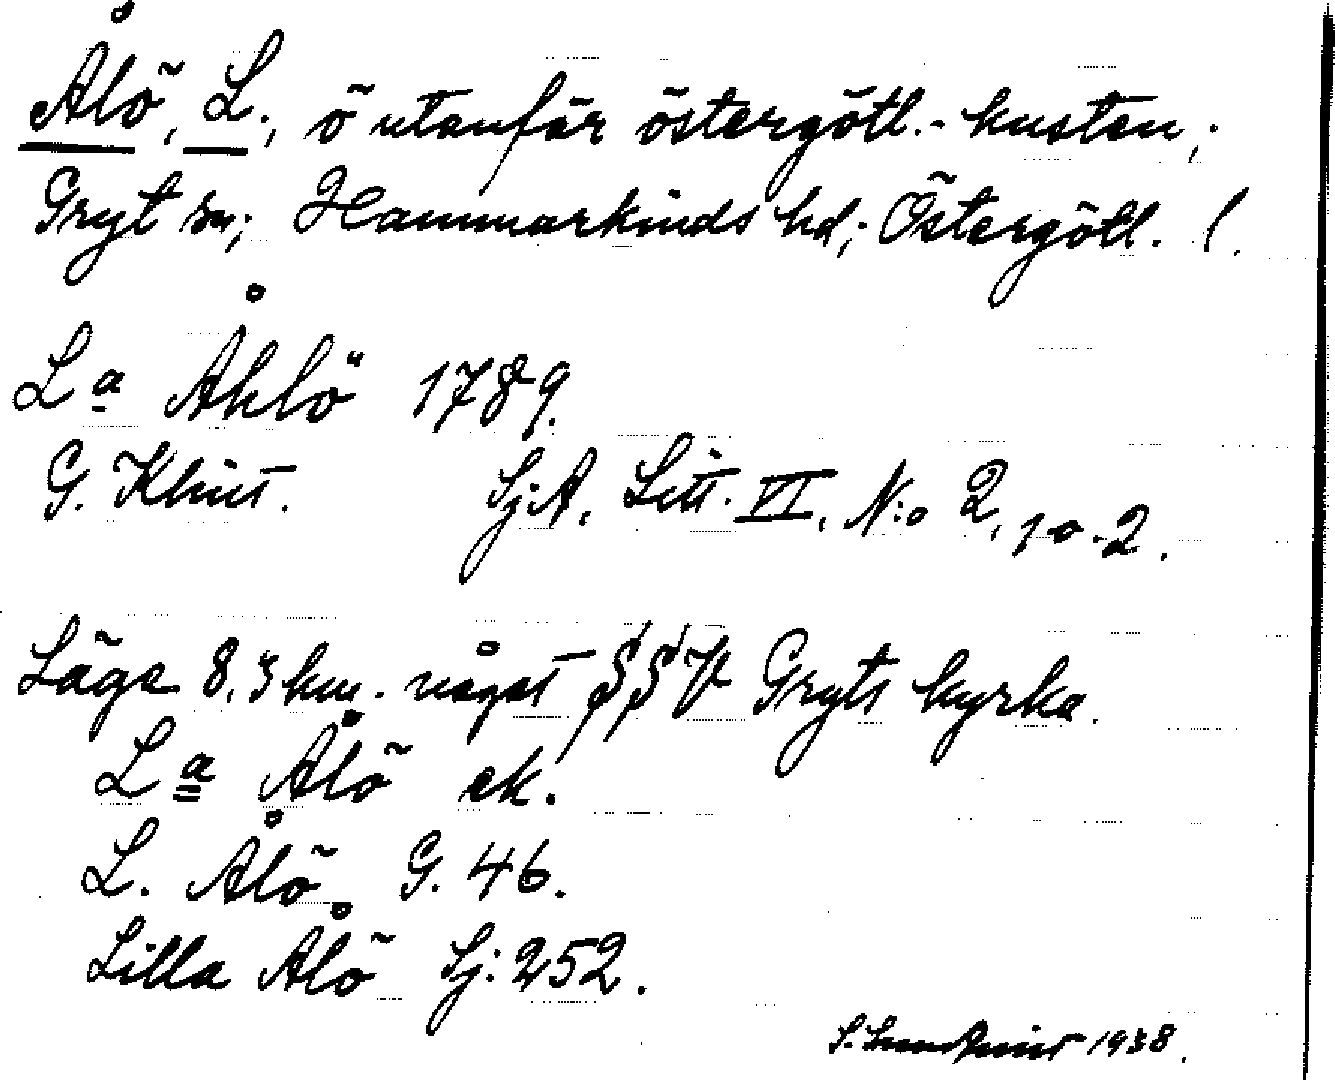 Ålö, L., ö utanför östergötl.-kusten;
Gryt sn; Hammarkinds hd; Östergötl. !.
La Åhlö 1789.
G. Klint. Sj.A. Litt. VI, N:o 2, 10-2.
Läge 8,5 km. något SSV Gryts kyrka.
La Ålö ek.
L. Ålö G. 46.
Lilla Ålö Sj: 252.
1938.